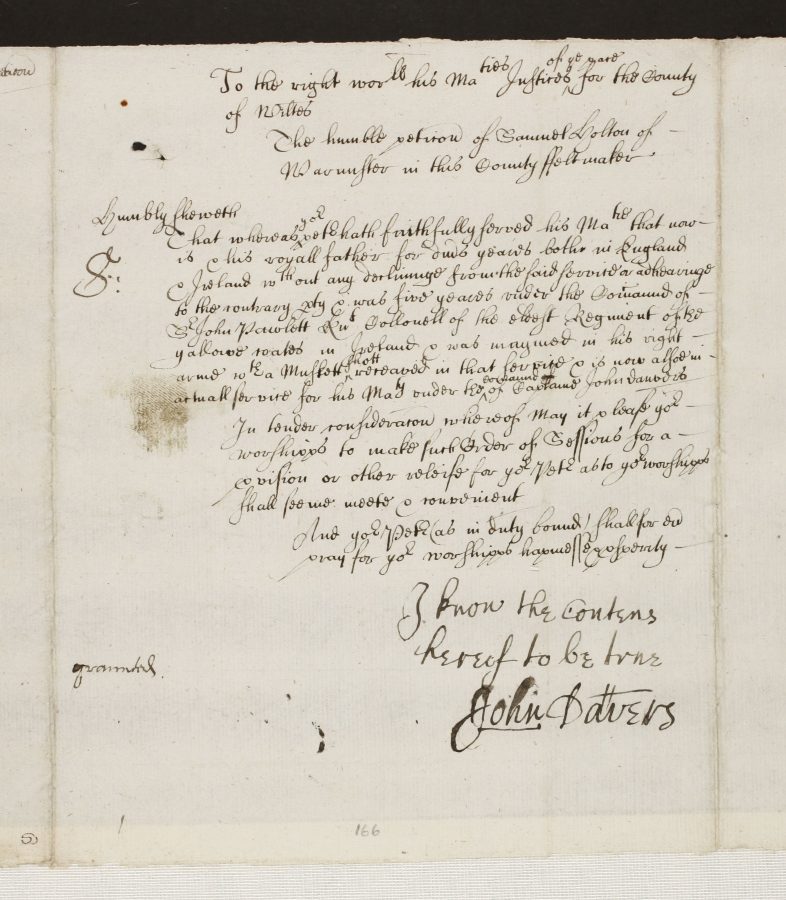 To the right wor.ll his Ma.ties Justices of ye peace for the County
of Wiltes
The humble peticon of Samuel Yolton of
Warmister in this County ffeltmaker
Humbly sheweth
That whereas yor petr hath faithfully served his Ma.tie that now
is & his royall father for divs yeares bothe in England
& Ireland wthout any declininge from the said service or adhearinge
to the contrary pty & was five yeares under the Comaund of
Sr John Pawlett Knt Collonell of the eldest Regiment of the
yallowe coates in Ireland & was maymed in his right
arme wth a Muskett shott receaved in that service & is now alsoe in
actuall service for his Maty under the comaund of Captaine John Danvers
In tender consideracon whereof May it please yor
worshipps to make such Order of Sessions for a
pvision or other releife for yor Petr as to yor worshipps
shall seeme meete & convenient
And yor Petr (as in duty bound) shall for ev
pray for yor worshipps happinesse & prosperity
I know the contens
hereof to be true
John Davers
graunted.
166